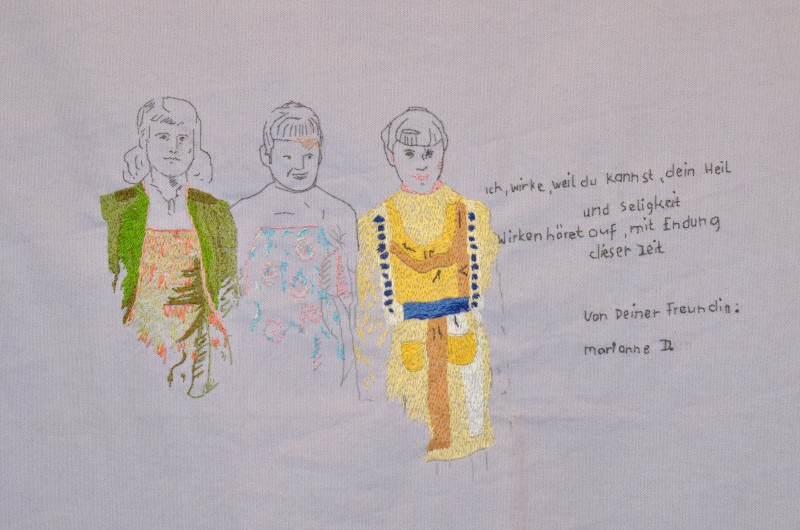 ich, wirke, weil du kannst, dein Heil
und Seligkeit
Wirken höret auf, mit Endung
dieser Zeit
Von Deiner Freundin:
marianne D.